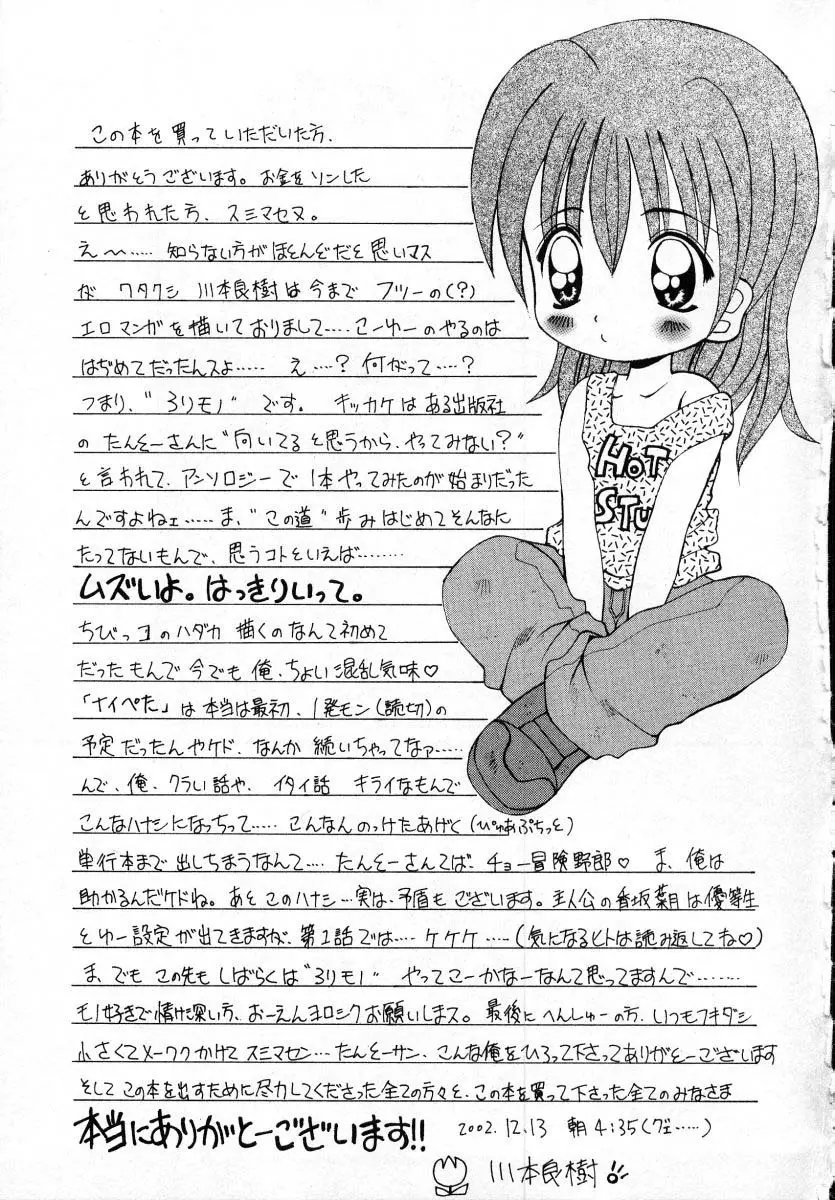 この本を買っていただいた方、
ありがとうございます。お金をソンした
と思われた方、スミマセヌ。
え〜…… 知らない方がほとんどだと思いマス
が ワタクシ 川本良樹は今まで フツーの(?)
エロマンガを描いておりまして…… こーゆーのやるのは
はぢめてだったんスよ…… え…‥? 何がって…‥?
つまり、"ろリモノ" です。 キッカケはある出版社
の たんとーさんに"向いてると思うから、やってみない?"
と言われて、アンソロジーで1本やってみたのが始まりだった
んですよねェ…… ま、"この道"歩みはじめてそんなに
たってないもんで、思うコトといえば………
ムズいよ。はっきりいって。
ちびっコのハダカ 描くのなんて初めて
だったもんで今でも俺、ちょい混乱気味♡
「ナイペた」は本当は最初、1発モン(読切)の
予定だったんやケド、なんか 続いちゃってなァ……
んで、俺、クラい話や、イタイ話 キライなもんで
こんなハナシになっちって…… こんなんのっけたあげく(ぴゅあぷちっと)
単行本まで出しちまうなんて…‥ たんとーさんてば、チョー冒険野郎♡ ま、俺は
助かるんだケドね。あと このハナシ…実は、矛盾もございます。主人公の香坂葉月は優等生
とゆー設定が出てきますが、第1話では…‥ ケケケ…‥(気になるヒトは読み返してね♡)
ま、でも この先もしばらくは"ろリモノ" やってこーかなーなんて思ってますんで………
モノ好きで情け深い方、おーえんヨロシクお願いしまス。最後にへんしゅーの方、いつもフキダシ
小さくてメーワクかけてスミマセン…たんとーサン、こんな俺をひろって下さってありがとーございます
そして この本を出すために尽力してくださった全ての方々と、この本を買って下さった全てのみなさま
本当にありがとーございます!!
2002.12.13 朝4:35(グェ……)
川本良樹
HOT
STU